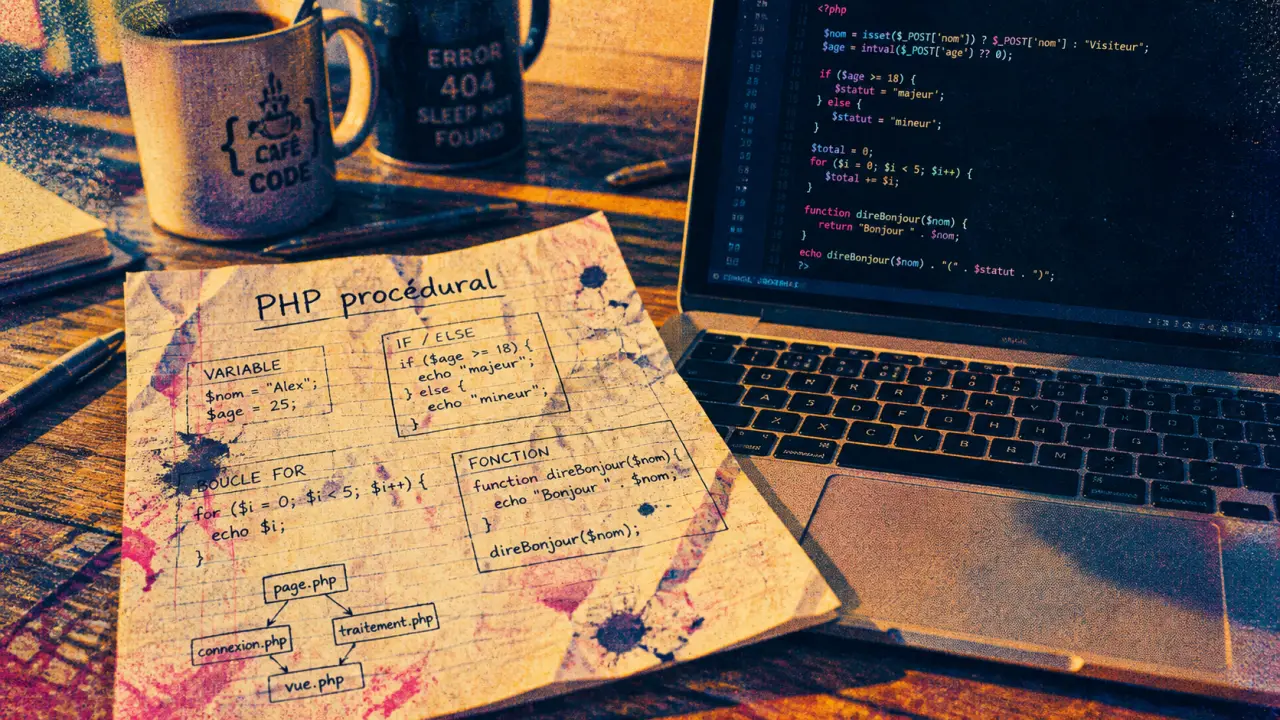 { CAFÉ CODE }
ERROR
404
SLEEP NOT
FOUND
PHP procédural
VARIABLE
$nom = "Alex";
$age = 25;
IF / ELSE
if ($age >= 18) {
echo "majeur";
} else {
echo "mineur";
}
BOUCLE FOR
for ($i = 0; $i < 5; $i++) {
echo $i;
}
FONCTION
function direBonjour($nom) {
echo "Bonjour " . $nom;
}
direBonjour($nom);
page.php
connexion.php
traitement.php
vue.php
<?php
$nom = isset($_POST['nom')) ? $_POST['nom'] : "Visiteur";
$age = intval($_POST['age') ?? 0);
if ($age >= 18) {
$statut = "majeur';
} else {
$statut = "mineur";
}
$total = 0;
for ($i = 0; $i < 5; $i++) {
$total += $i;
}
function direBonjour($nom) {
return "Bonjour " . $nom;
}
echo direBonjour($nom) . "(" . $statut . ")";
?>